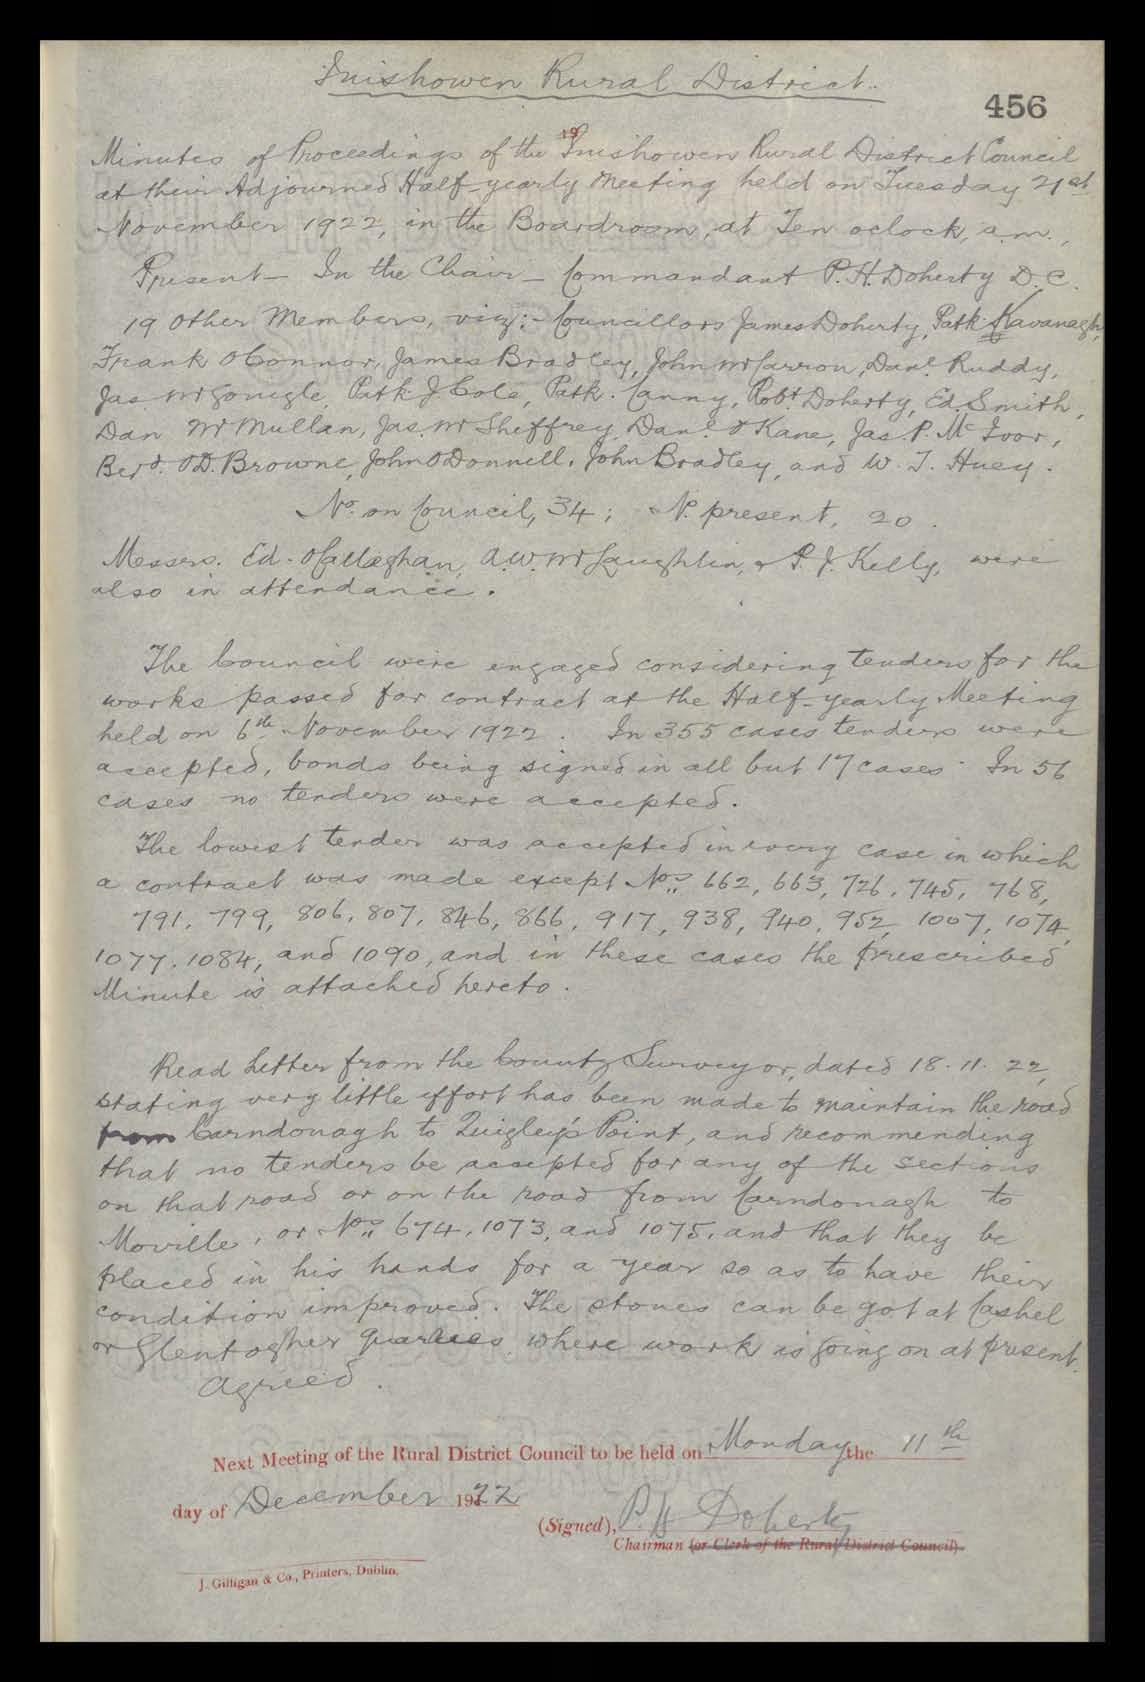 Inishowen Rural District.
456
Minutes of Proceedings of the Inishowen Rural District Council
19
at their Adjourned Half-yearly Meeting held on Tuesday 21st
November 1922, in the Boardroom, at Ten oclock, a.m.,
Present - In the Chair - Commandant P. H. Doherty D. C.
19 Other Members, viz:- Councillors James Doherty, Patk. Kavanagh,
Frank O'Connor, James Bradley, John McCarron, Danl. Ruddy,
Jas. McGonigle, Patk. J. Cole, Patk. Canny, Robt. Doherty, Ed. Smith,
Dan McMullan, Jas. McSheffrey, Danl. O'Kane, Jas. P. McIvor,
Berd. O'D. Browne, John O'Donnell, John Bradley, and W. T. Huey.
No. on Council, 34; No. present, 20.
Messrs. Ed. O'Callaghan, A. W. McLaughlin, & P. J. Kelly, were
also in attendance.
The Council were engaged considering tenders for the
works passed for contract at the Half-yearly Meeting
held on 6th November 1922. In 355 cases tenders were
accepted, bonds being signed in all but 17 cases. In 56
cases no tenders were accepted.
The lowest tender was accepted in every case in which
a contract was made except Nos. 662, 663, 726, 745, 768,
791, 799, 806, 807, 846, 866, 917, 938, 940, 952, 1007, 1074,
1077, 1084, and 1090, and in these cases the prescribed
Minute is attached hereto.
Read Letter from the County Surveyor, dated 18.11.22,
stating very little effort has been made to maintain the road
from Carndonagh to Quigley's Point, and recommending
that no tenders be accepted for any of the sections
on that road or on the road from Carndonagh to
Moville, or Nos. 674, 1073, and 1075, and that they be
placed in his hands for a year so as to have their
condition improved. The stones can be got at Cashel
or Glentogher quarries where work is going on at present.
Agreed.
Next Meeting of the Rural District Council to be held on Monday the 11th
day of December 1922
(Signed), P. H Doherty
Chairman (or Clerk of the Rural District Council).
J. Gilligan & Co., Printers, Dublin.